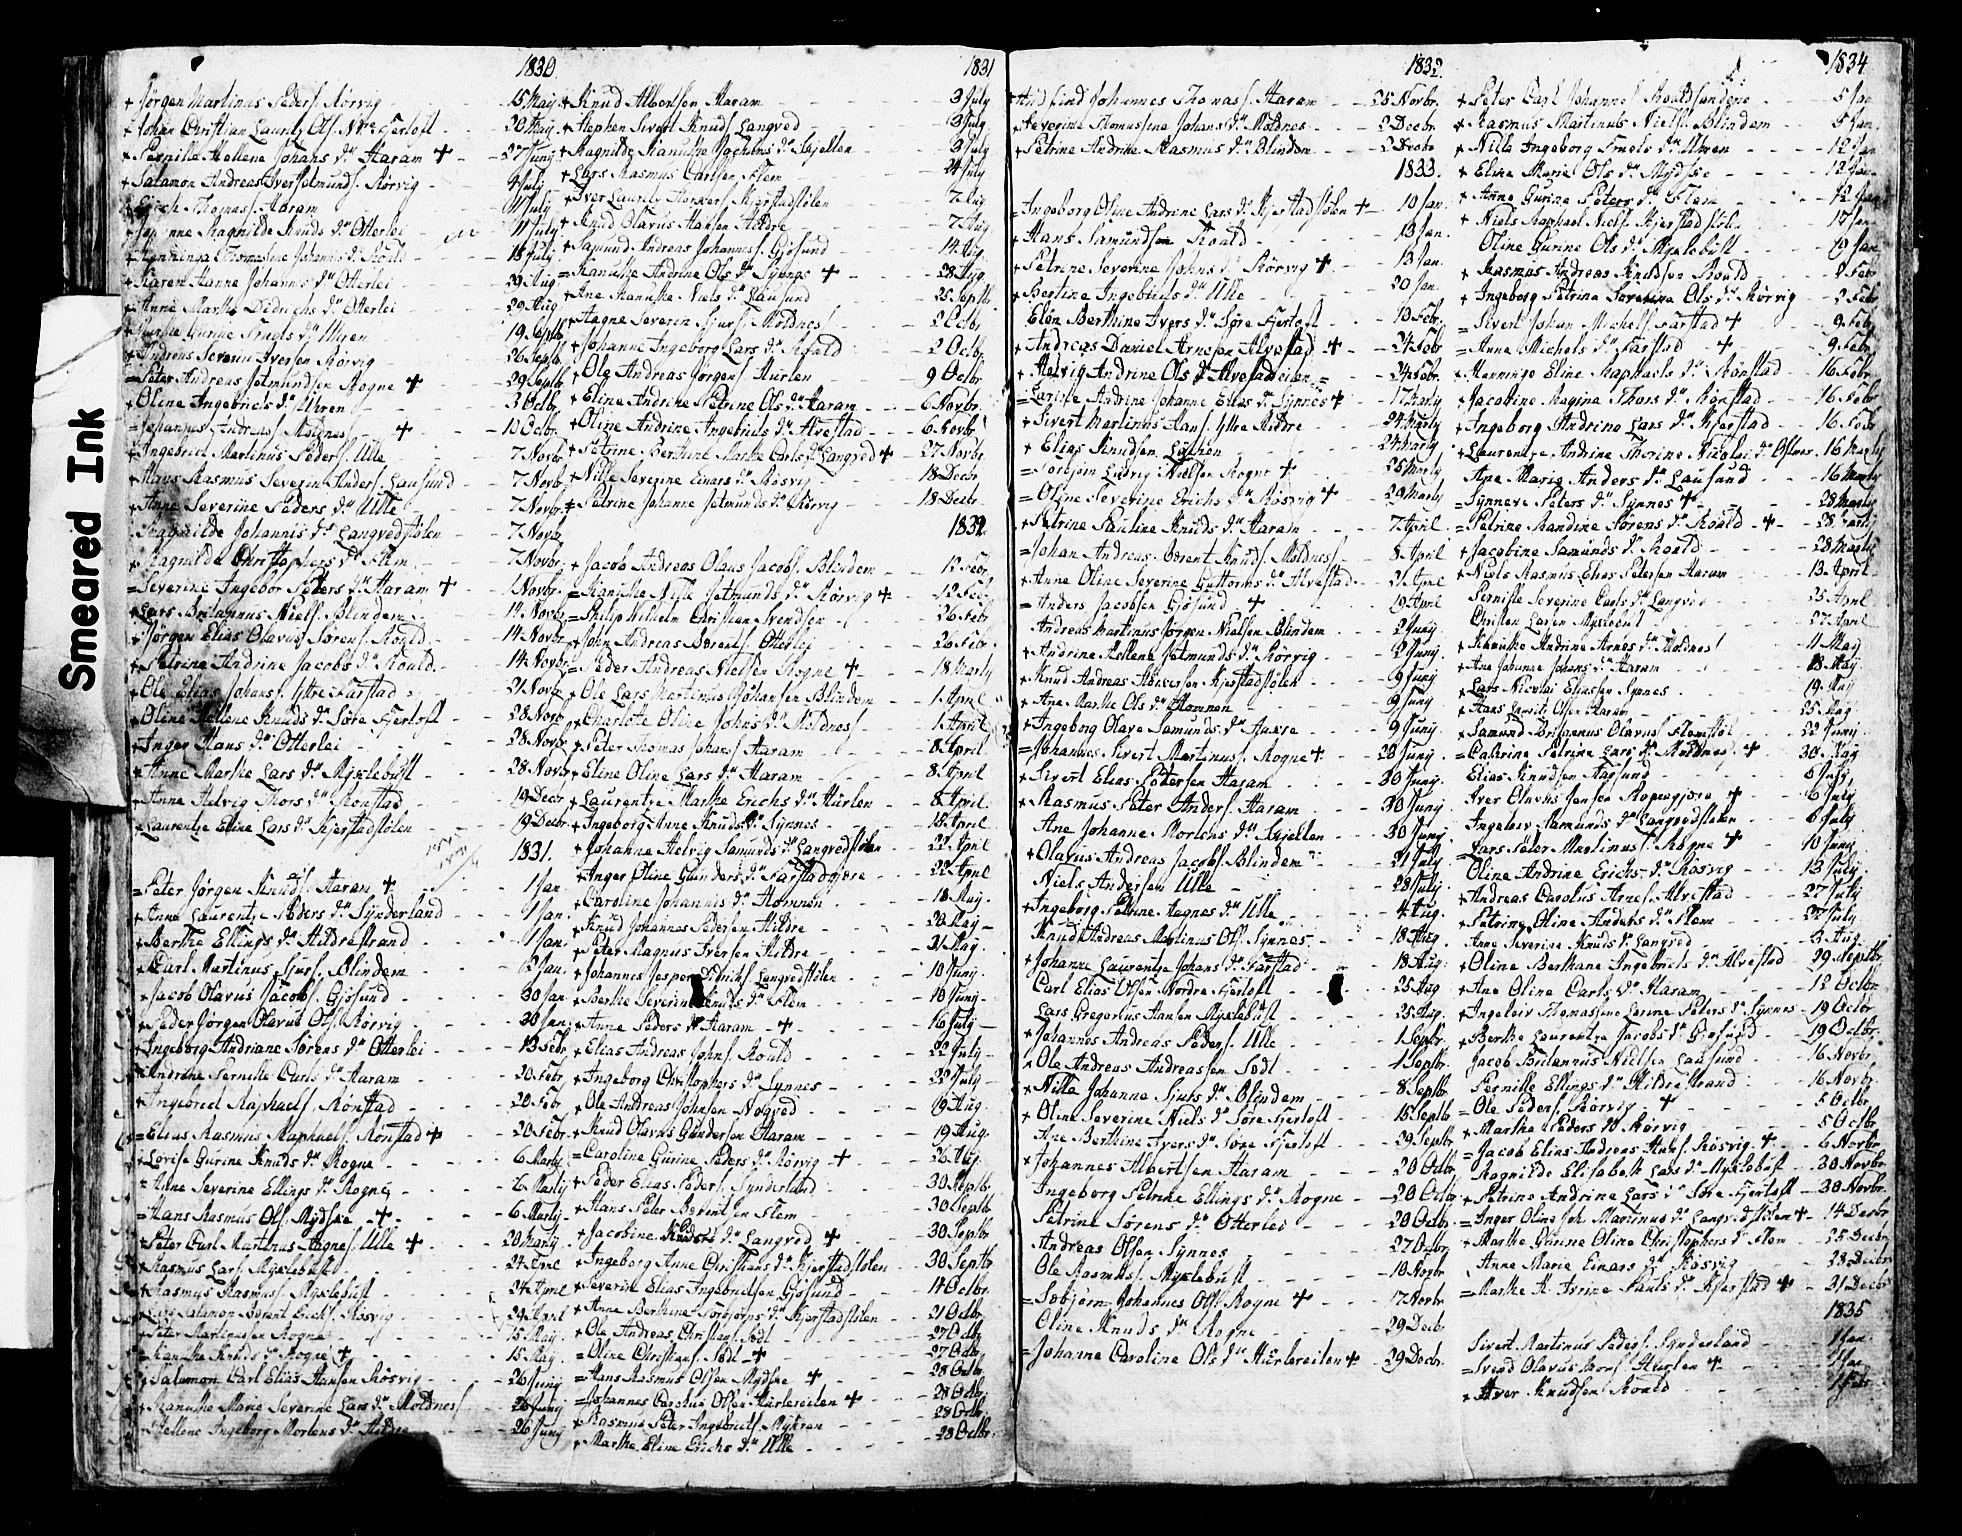 Smeared Ink
1830
+ Jørgen Martinus Peders. Rørvig 15 Maij
+ Johan Christian Lauritz Ols. Nre Fjertoft 20 Maij
+ Pernille Hellene Johans d. Haram + 27 Junij
+ Salamon Andreas Iver Jetmunds. Rørvig 4 Julij
Thomas. Haram 11 Julij
Ragnilde Knuds d. Otterlei 11 Julij
Thomasine Johans d. Roald 18 Julij
Karen Hanne Johannis d. Otterlei 29 Aug
Anne Marthe Didrichs d. Otterlei 29 Aug
Gunnle Gurine Knuds d. Uhren 19 Septbr
Andreas Severin Iversen Rørvig 26 Septb
= Peter Andreas Jetmundsen Rogne + 29 Septbr
+ Oline Ingebrigts d. Uhren 3 Octbr
= Johannes Andreas. Moldnes + 10 Octbr
+ Ingebrigt Martinus Peders. Ulle 7 Novbr
+ Hans Rasmus Severin Anders. Lausund 7 Novbr
+ Anne Severine Peders d. Ulle 7 Novbr
Ragnilde Johannis d. Langvedstølen 7 Novb
Ragnilde Christophers d. Flem 7 Novbr
= Severine Ingebor Peders d. Haram + Novbr
+ Lars Britannus Niels. Blindem 14 Novbr
+ Jørgen Elias Olavus Sørens. Roald 14 Novbr
+ Petrine Andrine Jacobs d. Roald 14 Novbr
+ Ole Elias Johans. Yttre Farstad 21 Novb
+ Oline Hellene Knuds d. Søre Fjertoft 28 Novb
+ Inger Hans d. Otterlei 28 Novbr
+ Anne Marthe Lars d. Myklebust 28 Novbr
+ Anne Helvig Thors d. Rønstad 19 Decbr
Laurentze Eline Lars d. Kjerstadstølen 19 Decbr
1831.
= Peter Jørgen Knuds. Haram + 1 Jan
+ Anne Laurentze Peders d. Synderland 1 Jan
+ Berthe Ellings d. Hildrestrand 1 Jan
+ Carl Martinus Sjurs. Blindem 2 Jan
+ Jacob Olavus Jacobs. Gjøsund 30 Jan
+ Peder Jørgen Olavus Ols. Rørvig 30 Jan
+ Ingeborg Andriane Sørens d. Otterlei 13 Febr
+ Andrine Pernille Carls d. Haram 20 Febr
+ Ingebrigt Raphaels. Rønstad 20 Febr
= Elias Rasmus Raphaels. Rønstad + 20 Febr
+ Lovise Gurine Knuds d. Rogne 6 Martij
= Anne Severine Ellings d. Rogne 6 Martij
= Hans Rasmus Ols. Mydske + 6 Martij
+ Peter Carl Martinus Aagnes. Ulle + 20 Martij
+ Rasmus Lars. Myklebust 24 April
+ Rasmus Rasmus. Myklebust 24 April
Lars Salamon Berent Erichs. Røsvig 24 April
+ Peter Martinusen Rogne 15 Maij
= Hanikke Knuds d. Rogne + 15 Maij
+ Salamon Carl Elias Hansen Røsvig 26 Junij
+ Ranukke Marie Severine Lars d. Moldnes 26 Junij
+ Hellene Ingeborg Mortens d. Hildre 26 Junij
1831
+ Knud Albertsen Haram 3 July
+ Stephen Sivert Knuds. Langved 3 July
+ Ragnilde Ranukke Jachims d. Skjelten 3 July
+ Lars Rasmus Carlsen Flem 24 July
+ Iver Lauritz Korsvers. Kjerstadstølen 7 Aug
+ Knud Olavus Hansen Hildre 7 Aug
+ Samund Andreas Johannes. Gjøsund 14 Aug
= Ranukke Andrine Ols d. Synnes + 28 Aug
+ Ane Ranukke Niels d. Lausund 25 Septbr
+ Aagne Severin Sjurs. Moldnes 2 Octbr
+ Johanne Ingeborg Lars d. Roald 2 Octbr
+ Ole Andreas Jørgens. Hurlen 9 Octbr
+ Eline Andrikke Petrine Ols d. Haram 6 Novbr
+ Oline Andrine Ingebrigts d. Alvestad 6 Novbr
+ Petrine Berthine Marthe Carls d. Langved + 27 Novbr
+ Nille Severine Einars d. Røsvig 18 Decbr
+ Petrine Johanne Jetmunds d. Rørvig 18 Decbr
1832
+ Jacob Andreas Olaus Jacobs. Blindem 12 Febr
= Ranukke Nille Jetmunds d. Rørvig + 12 Febr
= Philip Wilhelm Christian Svendsen 26 Febr
+ John Andreas Berents. Otterlei 26 Febr
= Peder Andreas Nielsen Rogne + 18 Martij
+ Ole Lars Martinus Johansen Blindem 1 April
+ Charlotte Oline Johns d. Moldnes 1 April
+ Peter Thomas Johans. Haram 8 April
+ Eline Oline Lars d. Haram 8 April
+ Laurentze Marthe Erichs d. Hurlen 8 April
+ Ingeborg Anne Knuds d. Synnes 15 April
+ Johanne Helvig Samunds d. Langvedstølen 22 April
+ Inger Oline Gunders d. Farstadgjære 22 April
+ Caroline Johannis d. Homnen 18 Maij
+ Knud Johannes Pedersen Hildre 20 Maij
+ Peter Magnus Iversen Hildre 31 Maij
+ Johannes Jesper Didriks. Langvedstølen 10 Junij
+ Berthe Severine Knuds d. Flem 10 Junij
= Anne Peders d. Haram + 16 July
+ Elias Andreas Johns. Roald 22 July
+ Ingeborg Christophers d. Synnes 22 July
+ Ole Andreas Johnsen Nogved 19 Aug
+ Knud Olavus Gundersen Haram 19 Aug
= Caroline Gurine Peders d. Rørvig + 26 Aug
+ Peder Elias Peders. Synderland 30 Septb
+ Hans Peter Berentsen Flem 30 Septbr
+ Jacobine Knuds d. Langved + 30 Septbr
+ Ingeborg Anne Christians d. Kjerstadstølen 30 Septbr
+ Severin Elias Ingebrigtsen Gjøsund 14 Octbr
+ Anne Berthine Torbjørns d. Kjerstadstølen 21 Octbr
+ Ole Andreas Christians. Sødt 27 Octb
= Oline Christians. Sødt + 27 Octb
= Hans Rasmus Olsen Mydske + 28 Octbr
= Johannes Carolus Olsen Hurlereiten + 28 Octb
+ Rasmus Peter Ingebrigts. Myhren 28 Octbr
+ Marthe Eline Erichs d. Ulle 28 Octbr
1832
Johannes Thomas. Haram 25 Novbr
+ Severine Thomasine Johans d. Moldnes 2 Decbr
+ Petrine Andrine Rasmus d. Blindem 2 Decbr
1833
= Ingeborg Oline Andrine Lars d. Kjerstadstølen + 10 Jan
+ Hans Samundsen Roald 13 Jan
+ Petrine Severine Johns d. Rørvig + 13 Jan
+ Bertine Ingebrigts d. Ulle 20 Jan
Elen Berthine Ivers d. Søre Fjertoft 10 Febr
+ Andreas Daniel Arnesen Alvestad + 24 Febr
+ Helvig Andrine Ols d. Alvestadeien 24 Febr
= Larisse Andrine Johanne Elias d. Synnes + 17 Martij
+ Sivert Martinus Hans. Yttre Hildre 24 Martij
+ Elias Knudsen Lyshen 24 Martij
= Torbjørn Ludvig Nielsen Rogne + 25 Martij
= Oline Severine Erichs d. Røsvig + 29 Martij
+ Petrine Pauline Knuds d. Haram 7 April
= Johan Andreas Berent Knuds. Moldnes 8 April
+ Anne Oline Severine Guttorms d. Alvestad 21 April
= Anders Jacobsen Gjøsund + 19 April
Andreas Martinus Jørgen Nielsen Blindem 2 Junij
+ Andrine Hellene Jetmunds d. Rørvig 2 Junij
+ Knud Andreas Korsversen Kjerstadstølen 9 Junij
+ Ane Marthe Ols d. Homnen 9 Junij
+ Ingeborg Olave Samunds d. Huxre 9 Junij
= Johannes Sivert Martinus. Rogne + 23 Junij
+ Sivert Elias Pedersen Haram 30 Junij
+ Rasmus Peter Anders. Haram 30 Junij
Ane Johanne Mortens d. Skjelten 30 Junij
+ Olavus Andreas Jacobs. Blindem 21 July
Niels Andersen Ulle 28 July
+ Ingeborg Petrine Aagnes d. Ulle 4 Aug.
Knud Andreas Martinus Ols. Synnes 18 Aug
+ Johanne Laurentze Johans d. Farstad 18 Aug
Carl Elias Olsen Nordre Fjertoft 25 Aug
Lars Gregorius Hansen Myklebust 25 Aug.
+ Johannes Andreas Peders. Ulle 1 Septbr
+ Ole Andreas Andreassen Sødt 1 Septbr
+ Nille Johanne Sjurs d. Blindem 8 Septbr
+ Oline Severine Niels d. Søre Fjertoft 15 Septb
Ane Berthine Ivers d. Søre Fjertoft 29 Septbr
+ Johannes Albertsen Haram 20 Octbr
Ingeborg Petrine Ellings d. Rogne 20 Octbr
Petrine Sørens d. Otterlei 20 Octbr
Andreas Olsen Synnes 27 Octbr
Ole Rasmus. Myklebust 10 Novbr
= Torbjørn Johannes Ols. Rogne + 17 Novbr
Oline Knuds d. Rogne 29 Decb
= Johanne Caroline Ols d. Hurlereiten + 29 Decbr
1834
+ Peter Carl Johannes. Roaldsandene 5 Jan
+ Rasmus Martinus Niels. Blindem 5 Jan
+ Nille Ingeborg Knuds d. Uhren 12 Jan
+ Eline Marie Ols d. Mydske 12 Jan
+ Anne Gurine Peders d. Flem 12 Jan
+ Niels Raphael Niels. Kjerstadstølen 17 Jan
Oline Gurine Ols d. Myklebust 19 Jan
+ Rasmus Andreas Knudsen Roald 2 Febr
+ Ingeborg Petrine Severine Ols d. Rørvig 2 Febr
= Sivert Johan Michels. Farstad + 9 Febr
= Anne Michels d. Farstad + 9 Febr
+ Henninge Eline Raphaels d. Rønstad 16 Febr
+ Jacobine Regine Thors d. Rønstad 16 Febr
+ Ingeborg Andrine Lars d. Kjerstad 16 Febr
+ Laurentze Andrine Thorine Nicolai d. 16 Martij
Ane Marie Anders d. Lausund 16 Martij
= Synneve Peters d. Synnes + 28 Martij
= Petrine Randine Sørens d. Roald + 28 Martij
+ Jacobine Samunds d. Roald 28 Martij
+ Niels Rasmus Elias Petersen Haram 13 April
Pernille Severine Carls d. Langved 25 April
Christen Larsen Myklebust 27 April
+ Ranukke Andrine Arnes d. Moldnes 11 Maij
+ Ane Johanne Johans d. Haram 18 Maij
+ Lars Nicolai Eliassen Synnes 19 Maij
+ Hans Lauritz Olsen Haram 25 Maij
+ Samund Britannus Olavus Flemstøl 22 Junij
= Cathrine Petrine Lars d. Moldnes + 30 Maij
Elias Knudsen Farsund 6 July
Iver Olavus Jensen Rognegjære + 6 July
Ingeleiv Samunds d. Langvedstølen 6 July
Lars Peter Martinus. Rogne + 10 Junij
Oline Andrine Erichs d. Røsvig 13 July
+ Andreas Carolus Arnes. Alvestad 27 July
+ Petrine Oline Anders d. Flem 27 July
Anne Severine Knuds d. Langved 3 Aug
+ Oline Berthane Ingebrigts d. Alvestad 29 Septbr
+ Ane Oline Carls d. Haram 12 Octbr
+ Ingeleiv Thomassine Lorine Peters d. Synnes 19 Octbr
+ Berthe Laurentze Jacobs d. Gjøsund 19 Octbr
Jacob Britannus Nielsen Lausund 16 Novbr
Pernille Ellings d. Hildrestrand 16 Novbr
= Ole Peders. Rørvig + 5 Octbr
+ Marthe Peders d. Rørvig 5 Octbr
= Jacob Elias Andreas Hans. Røsvig + 6 Novbr
Ragnilde Elisabeth Lars d. Myklebust 30 Novbr
+ Petrine Andrine Lars d. Søre Fjertoft 30 Novbr
= Inger Oline Joh. Martinus d. Langvedstølen + 14 Decbr
+ Marthe Gurine Oline Christophers d. Flem 25 Decbr
Anne Marie Einars d. Røsvig 28 Decbr
= Marthe Karine Pauls d. Kjerstad + 21 Decbr
1835
Sivert Martinus Peders. Synderland 1 Jan
= Svend Olavus Hurlen + 1 Jan
+ Iver Knudsen Roald 1 Febr